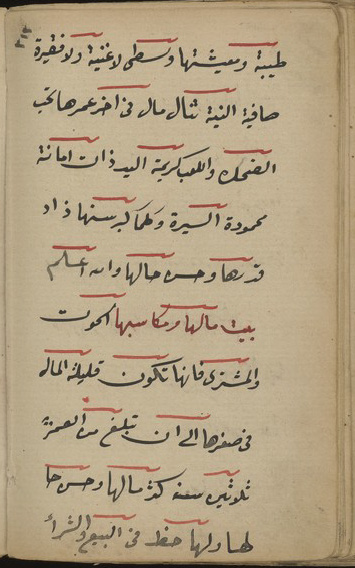 طيبة ومعيشتها وسطى لا غنية ولا فقيرة
صافية النية تنال مال فى اخر عمرها تحب
الضحك واللعب كريمة اليد ذات امانة
محمودة السيرة وكلما كبر سنها زاد
قدرها وحسن حالها والله اعلم
بيت مالها ومكاسبها الحوت
والمشترى فانها تكون قليلة المال
فى صغرها الى ان تبلغ من العمر
ثلاثين سنة كثر مالها وحسن حا
لها ولها حظ فى البيع والشراء